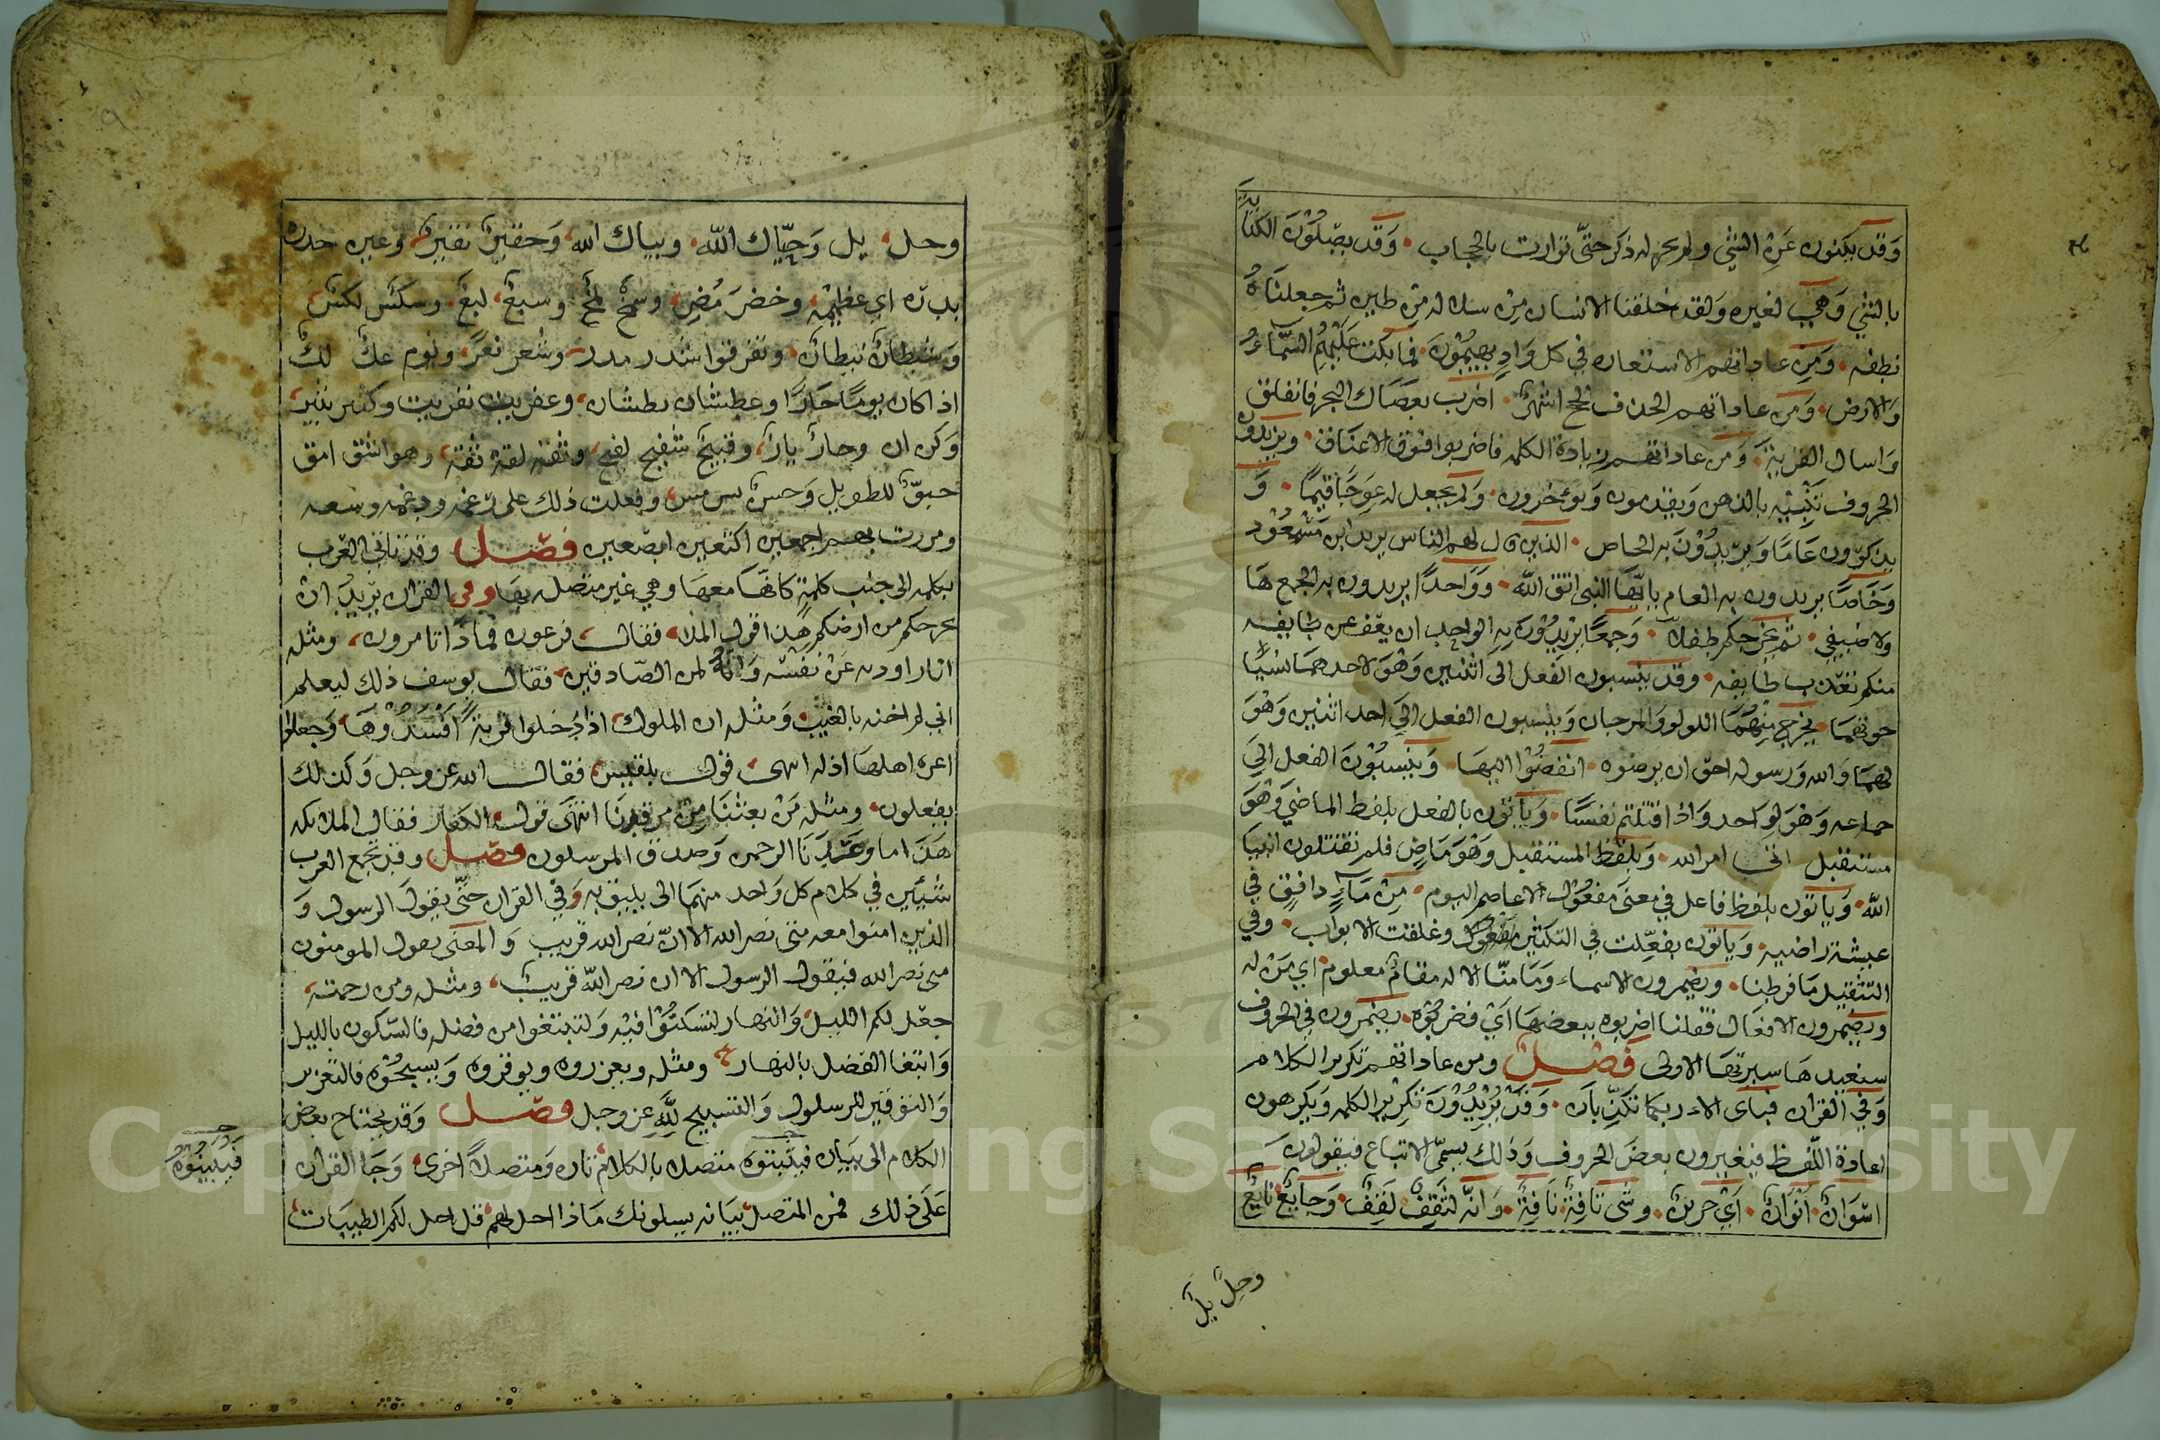 وقد يكنون عن الشي ولم يجر له ذكر حتى توارت بالحجاب وقد يصلون الكناية
بالشي وهي لغيره ولقد خلقنا الانسان من سلاله من طين ثم جعلناه
نطفه ومن عاداتهم الاستعاره في كل واد يهيمون فما بكت عليهم السماء
والارض ومن عاداتهم الحذف الحج اشهر اضرب بعصاك البحر فانفلق
واسال القرية ومن عاداتهم زيادة الكلمه فاضربوا فوق الاعناق ويزيدون
الحروف تنبت بالدهن ويقدمون ويوخرون ولم يجعل له عوجا قيما و
يذكرون عاما ويريدون به الخاص الذين قال لهم الناس يريد ابن مسعود
وخاصا يريدون به العام يا ايها النبي اتق الله وواحدا يريدون به الجمع ها
ولا ضيفي ثم يخرجكم طفلا وجمعا يريدون به الواحد ان يعف عن طايفه
منكم نعذب طايفه وقد ينسبون الفعل الى اثنين وهو لاحدهما نسيا
حوتهما يخرج منهما اللولو والمرجان وينسبون الفعل الى احد اثنين وهو
لهما والله ورسوله احق ان يرضوه انفضوا اليها وينسبون الفعل الى
جماعه وهو لواحد واذ قتلتم نفسا وياتون بالفعل بلفظ الماضي وهو
مستقبل اتى امر الله وبلفظ المستقبل وهو ماض فلم تقتلون انبيا
الله وياتون بلفظ فاعل في معنى مفعول لا عاصم اليوم من ماء دافق في
عيشة راضيه وياتون بفعلت في التكثير وغلقت الابواب وفي
التثقيل ما فرطنا ويضمرون الاسماء وما منا الا له مقام معلوم اي من له
ويضمرون الافعال فقلنا اضربوه ببعضها اي فضربوه يضمرون في الحروف
سنعيدها سيرتها الاولى فصل ومن عاداتهم تكرير الكلام
وفي القران فباى الاء ربكما تكذبان وقد يريدون تكرير الكلمه ويكرهون
اعادة اللفظ فيغيرون بعض الحروف وذلك يسمى الاتباع فيقولون
اسوان اتوان اي حزين وشى تافه نافه وانه لثقف لقف وجايع نايع
وحل بل
وحل بل وحياك الله وبياك الله وحقير نقير وعين حدره
بدره اي عظيمه وخضر مضر وسمج لمج وسبغ لبغ وسكس لكس
وشيطان نيطان وتفرقوا شذر مذر وشغر نغر ويوم عك لك
اذا كان يوما حارا وعطشان نطشان وعفريت نفريت وكثير بثير
وكز ان وحار يار وقبيح شقيح لقيح وثقه لقه ثقه وهو اشق امق
حبق للطويل وحسن بسن مسن وفعلت ذلك على رغمه ودغمه وشعه
ومررت بهم اجمعين اكتعين ابصعين فصل وقد تاتي العرب
بكلمه الى جنب كلمة كانها معها وهي غير متصله بها وفي القران يريد ان
يخرجكم من ارضكم هذا قول الملا فقال فرعون فماذا تامرون ومثله
انا راودته عن نفسه وانه لمن الصادقين فقال يوسف ذلك ليعلم
اني لم اخنه بالغيب ومثله ان الملوك اذا دخلوا قرية افسدوها وجعلوا
اعزه اهلها اذله انتهى قول بلقيس فقال الله عز وجل وكذلك
يفعلون ومثله من بعثنا من مرقدنا انتهى قول الكفار فقال الملايكه
هذا ما وعدنا الرحمن وصدق المرسلون فصل وقد تجمع العرب
شيئين في كلام كل واحد منهما الى يليق به وفي القران حتى يقول الرسول و
الذين امنوا معه متى نصر الله الا ان نصر الله قريب والمعنى يقول المومنون
متى نصر الله فيقول الرسول الا ان نصر الله قريب ومثله ومن رحمته
جعل لكم الليل والنهار لتسكنوا فيه ولتبتغوا من فضله فالسكون بالليل
وابتغا الفضل بالنهار ومثله ويعزروه ويوقروه ويسبحوه فالتعزير
والتوقير للرسول والتسبيح لله عز وجل فصل وقد يحتاج بعض
الكلام الى بيان فيبينوه متصلا بالكلام تاره ومتصلا اخرى وجا القران
على ذلك فمن المتصل بيانه يسيلونك ماذا احل لهم قل احل لكم الطيبات
فيبينوه
Copyright © King Saud University
1957